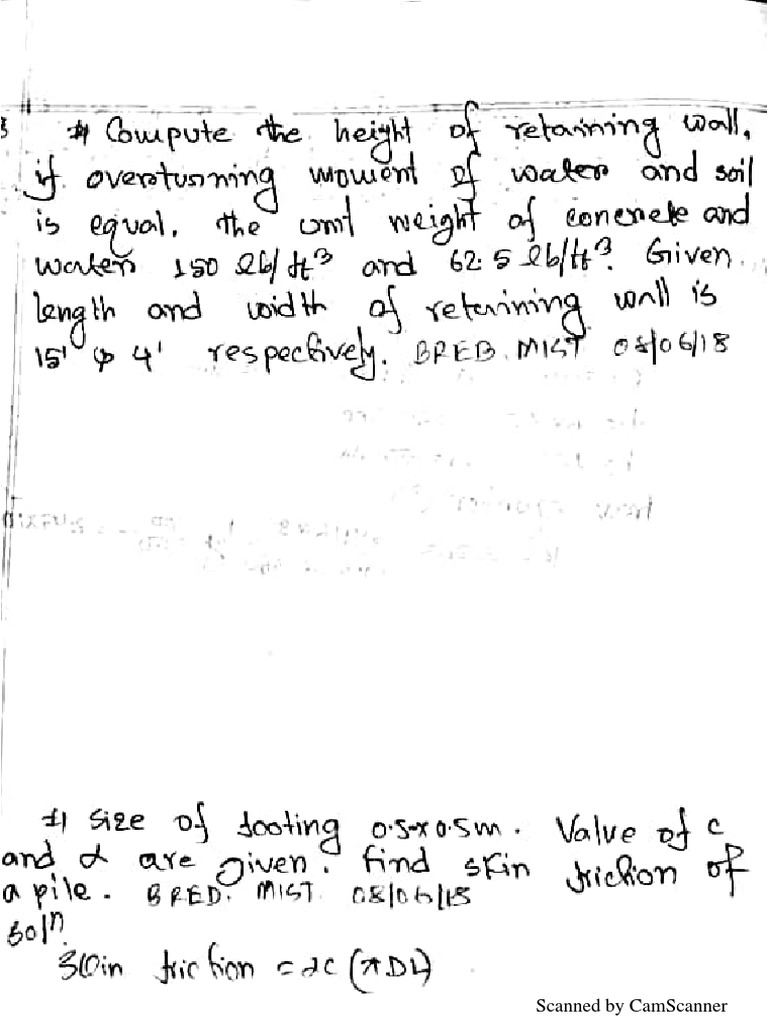 # Compute the height of retaining wall,
if overturning moment of water and soil
is equal. The unit weight of concrete and
water 150 lb/ft³ and 62.5 lb/ft³. Given
length and width of retaining wall is
15' & 4' respectively. BREB. MIST 08/06/18
# Size of footing 0.5×0.5m. Value of c
and α are given. find skin friction of
a pile. BREB. MIST. 08/06/18
Solⁿ.
Skin friction = αc (πDL)
Scanned by CamScanner